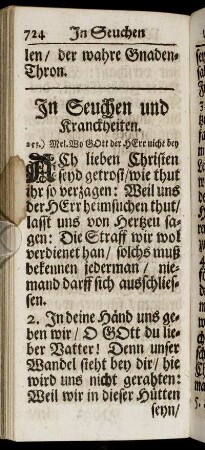 724 In Seuchen
len/ der wahre Gnaden-
Thron.
In Seuchen und
Kranckheiten.
253.) Mel. Wo GOtt der HErr nicht bey
ACh lieben Christen
seyd getrost/wie thut
ihr so verzagen: Weil uns
der HErr heimsuchen thut/
lasst uns von Hertzen sa-
gen: Die Straff wir wol
verdienet han/ solchs muß
bekennen jederman/ nie-
mand darff sich ausschlies-
sen.
2. In deine Händ uns ge-
ben wir/ O GOtt du lie-
ber Vatter! Denn unser
Wandel steht bey dir/ hie
wird uns nicht gerahten:
Weil wir in dieser Hütten
seyn/